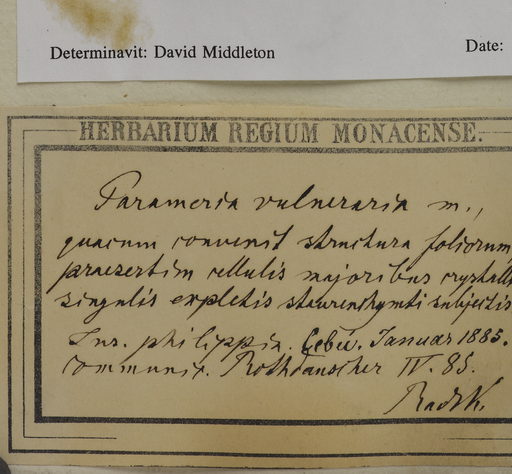 Determinavit: David Middleton
Date:
HERBARIUM REGIUM MONACENSE.
Parameria vulneraria m.,
quacum convenit structura foliorum,
praesertim cellulis majoribus crystalli
singulis expletis staurenchymti subjectis
Ins. philippin. Cebu. Januar 1885.
communic. Rothdauscher IV. 85.
Radlk.